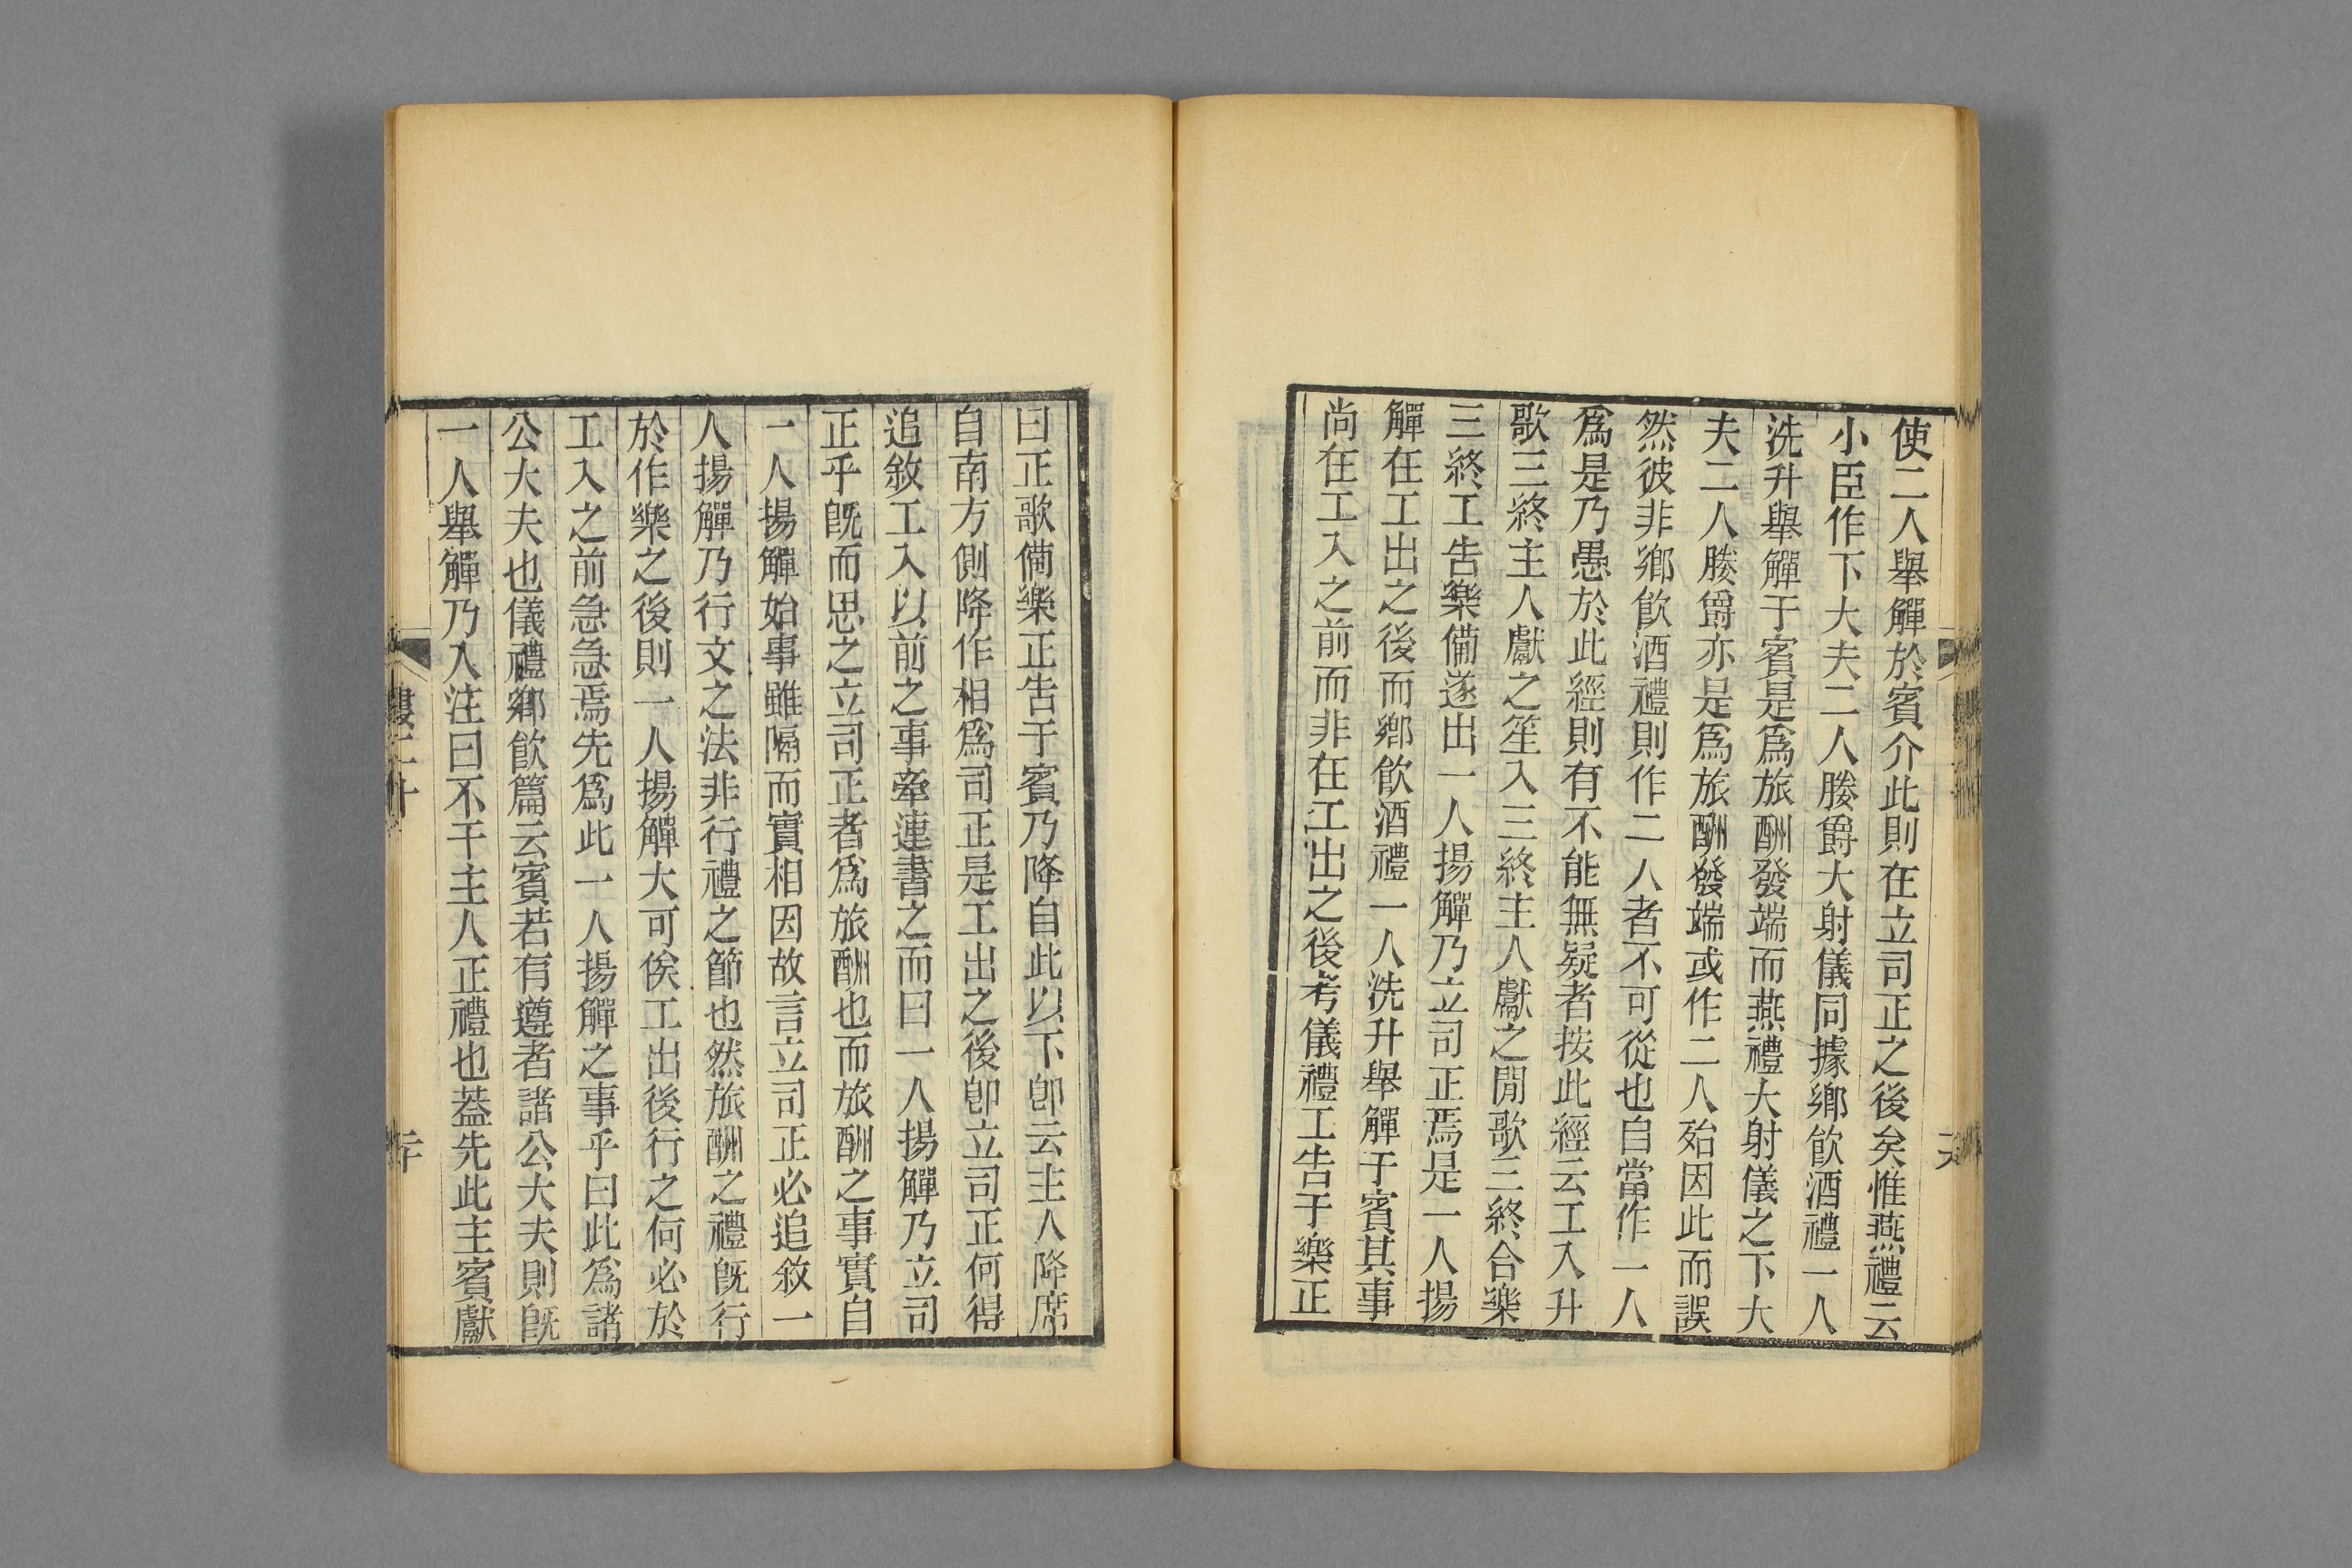 使二人舉觶於賓介此則在立司正之後矣惟燕禮云
小臣作下大夫二人媵爵大射儀同據鄉飲酒禮一人
洗升舉觶于賓是爲旅酬發端而燕禮大射儀之下大
夫二人媵爵亦是爲旅酬發端或作二人殆因此而誤
然彼非鄉飲酒禮則作二人者不可從也自當作一人
爲是乃愚於此經則有不能無疑者按此經云工入升
歌三終主人獻之笙入三終主人獻之閒歌三終合樂
三終工告樂備遂出一人揚觶乃立司正焉是一人揚
觶在工出之後而鄉飲酒禮一人洗升舉觶于賓其事
尚在工入之前而非在工出之後考儀禮工告于樂正
曰正歌備樂正告于賓乃降自此以下卽云主人降席
自南方側降作相爲司正是工出之後卽立司正何得
追敘工入以前之事牽連書之而曰一人揚觶乃立司
正乎旣而思之立司正者爲旅酬也而旅酬之事實自
一人揚觶始事雖隔而實相因故言立司正必追敘一
人揚觶乃行文之法非行禮之節也然旅酬之禮旣行
於作樂之後則一人揚觶大可俟工出後行之何必於
工入之前急急焉先爲此一人揚觶之事乎曰此爲諸
公大夫也儀禮鄉飲篇云賓若有遵者諸公大夫則旣
一人舉觶乃入注曰不干主人正禮也葢先此主賓獻